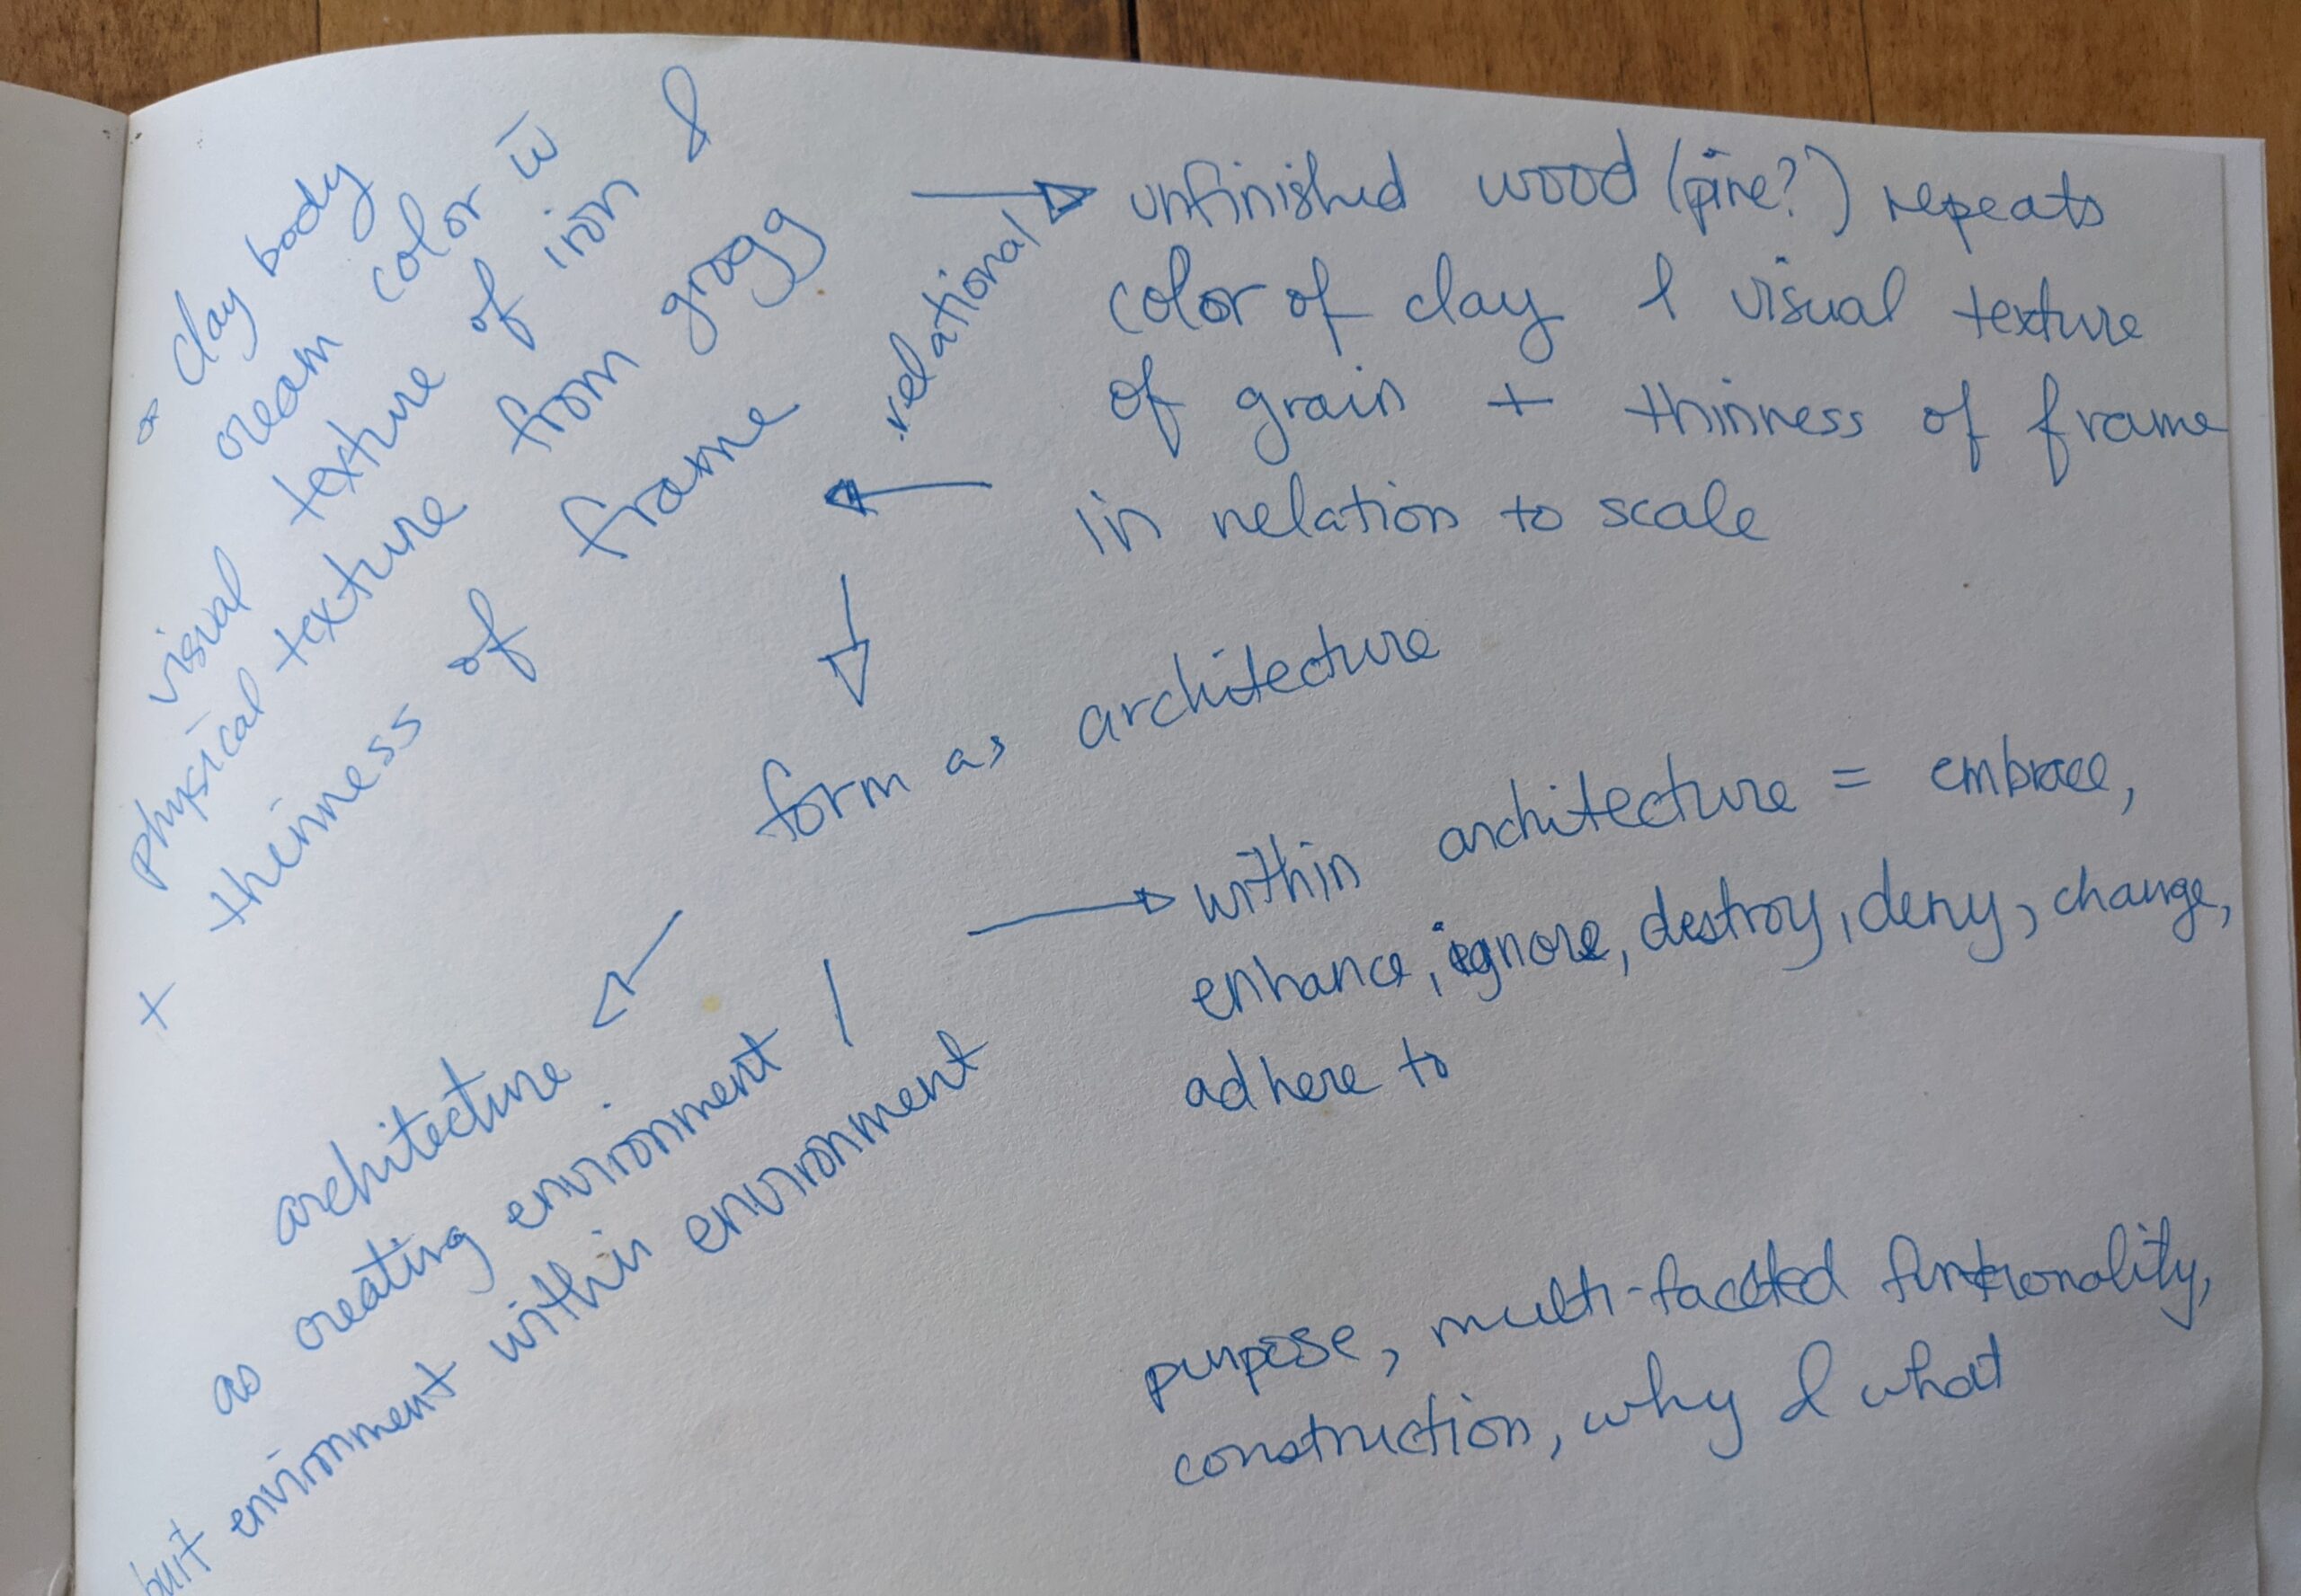 clay body
cream color w̄
visual texture of iron &
physical texture from grogg
+ thinness of frame
relational
unfinished wood (pine?) repeats
color of clay & visual texture
of grain + thinness of frame
in relation to scale
form as architecture
within architecture = embrace,
enhance, ignore, destroy, deny, change,
adhere to
architecture
as creating environment /
built environment within environment
purpose, multi-faceted funtionality,
construction, why & what